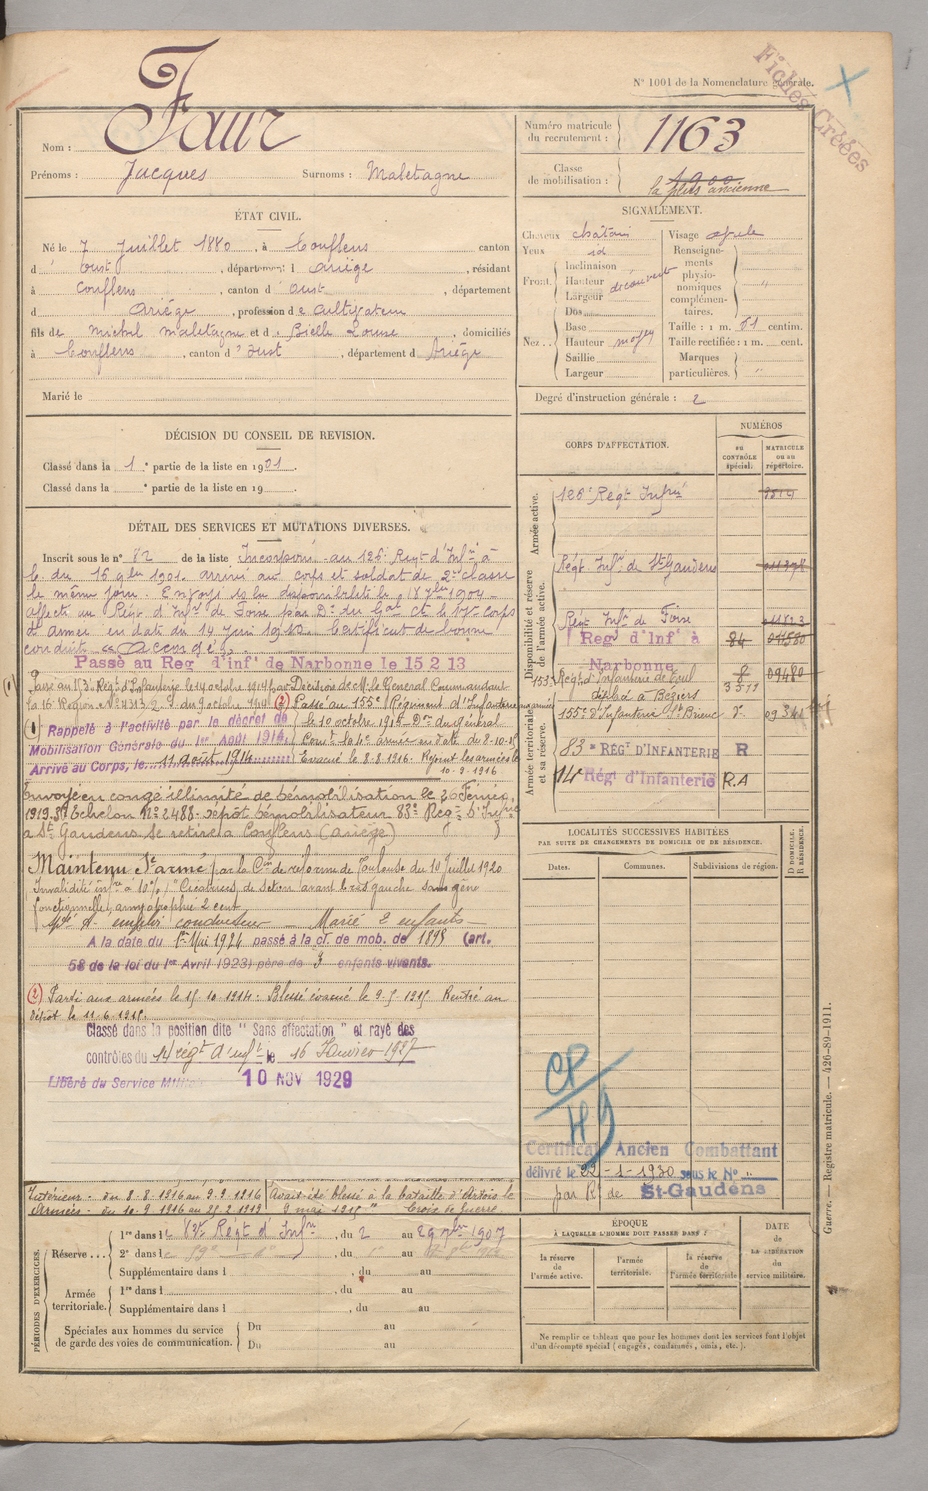 N° 1001 de la Nomenclature générale.
Fiches Créées
Nom : Faur
Prénoms : Jacques Surnoms : Maletagne
Numéro matricule du recrutement : 1163
Classe de mobilisation : 1900
la plus ancienne
ÉTAT CIVIL.
Né le 7 Juillet 1880, à Couflens canton
d' Oust, département d Ariège, résidant
à Couflens, canton d' Oust, département
d Ariége, profession de Cultivateur
fils de Michel Maletagne et de Bielle Louise, domiciliés
à Couflens, canton d' Oust, département d Ariège
Marié le
SIGNALEMENT.
Cheveux chatain
Yeux id
Front. Inclinaison
Hauteur découvert
Largeur
Nez. Dos
Base
Hauteur moyen
Saillie
Largeur
Visage ovale
Renseignements physionomiques complémentaires. "
Taille : 1 m. 61 centim.
Taille rectifiée : 1 m. cent.
Marques particulières. "
Degré d'instruction générale : 2
DÉCISION DU CONSEIL DE REVISION.
Classé dans la 1e partie de la liste en 1901.
Classé dans la e partie de la liste en 19 .
CORPS D'AFFECTATION.
NUMÉROS
AU CONTRÔLE spécial.
MATRICULE OU AU répertoire.
Armée active.
126e Régt Infrie
Disponibilité et réserve de l'armée active.
Régt. Infie de St Gaudens
Régt Infie de Foix
Regt d'Infie à Narbonne 84
153e Régt d'Infanterie de Toul 8 09480
dépôt à Béziers
Armée territoriale et sa réserve.
155e d'Infanterie St Brieuc
83e RÉGt D'INFANTERIE R
14 Régt d'Infanterie R.A
DÉTAIL DES SERVICES ET MUTATIONS DIVERSES.
Inscrit sous le n° 82 de la liste Incorporé au 126e Regt d'Infie à
c. du 16 9bre 1901. arrivé au corps et soldat de 2e classe
le même jour. Envoyé en disponibilité le 18 7bre 1904.
affecté au Régt d'Infie de Foix par Don du Gal Ct le 17e corps
d'armée en date du 14 Juin 1910. Certificat de bonne
conduite « Accordé ».
Passé au Regt d'infie de Narbonne le 15 2 13
Passé au 153e Régt d'Infanterie le 14 octobre 1914 par Décision de M. le Général Commandant
la 16e Région No 4313.2 du 9 octobre 1914
(2) Passé au 155e Régiment d'Infanterie aux armées
le 10 octobre 1915 Don du Général
Comt la 4e armée en date du 8-10-15
Evacué le 8.8.1916. Rejoint les armées le
10-9-1916
(1) Rappelé à l'activité par le décret de
Mobilisation Générale du 1er Août 1914.
Arrivé au Corps, le 11 août 1914
Envoyé en congé illimité de démobilisation le 26 Février
1919. 8e Echelon No 2488. Dépôt démobilisateur 83e Regt d'Infie
à St Gaudens Se retire à Couflens (Ariège)
Maintenu St armé par la Con de réforme de Toulouse du 10 Juillet 1920
Invalidité infre à 10% "Cicatrices de séton avant bras gauche sans gêne
fonctionnelle, amyotrophie 2 cent
emploi conducteur — Marié 2 enfants —
A la date du 1er Mai 1924 passé à la cl. de mob. de 1895 (art.
58 de la loi du 1er Avril 1923) père de 3 enfants vivants.
(2) Parti aux armées le 15 10 1914. Blessé évacué le 9 5 1915 Rentré au
dépôt le 11.6.1915.
Classé dans la position dite " Sans affectation " et rayé des
contrôles du 14 régt d'Infie le 16 Janvier 1927
Libéré du Service Milit 10 NOV 1929
Intérieur - du 8.8.1916 au 9.9.1916
Armées - du 10.9.1916 au 25.2.1919
Avait été blessé à la bataille d'Artois le
9 mai 1915" Croix de Guerre.
LOCALITÉS SUCCESSIVES HABITÉES
PAR SUITE DE CHANGEMENTS DE DOMICILE OU DE RÉSIDENCE.
Dates.
Communes.
Subdivisions de région.
D DOMICILE.
R RÉSIDENCE.
CP
Certificat Ancien Combattant
délivré le 22-1-1930 sous le No "
par Rt de St-Gaudens
PÉRIODES D'EXERCICES.
Réserve... 1re dans le Régt d'Infie, du 2 au 29 7bre 1907
2e dans le , du au
Supplémentaire dans l , du au
Armée territoriale. 1re dans l , du au
Supplémentaire dans l , du au
Spéciales aux hommes du service de garde des voies de communication. Du au
Du au
ÉPOQUE
À LAQUELLE L'HOMME DOIT PASSER DANS :
la réserve de l'armée active.
l'armée territoriale.
la réserve de l'armée territoriale
DATE de LA LIBÉRATION du service militaire.
Ne remplir ce tableau que pour les hommes dont les services font l'objet
d'un décompte spécial (engagés, condamnés, omis, etc.).
Guerre. — Registre matricule. — 426-89-1911.